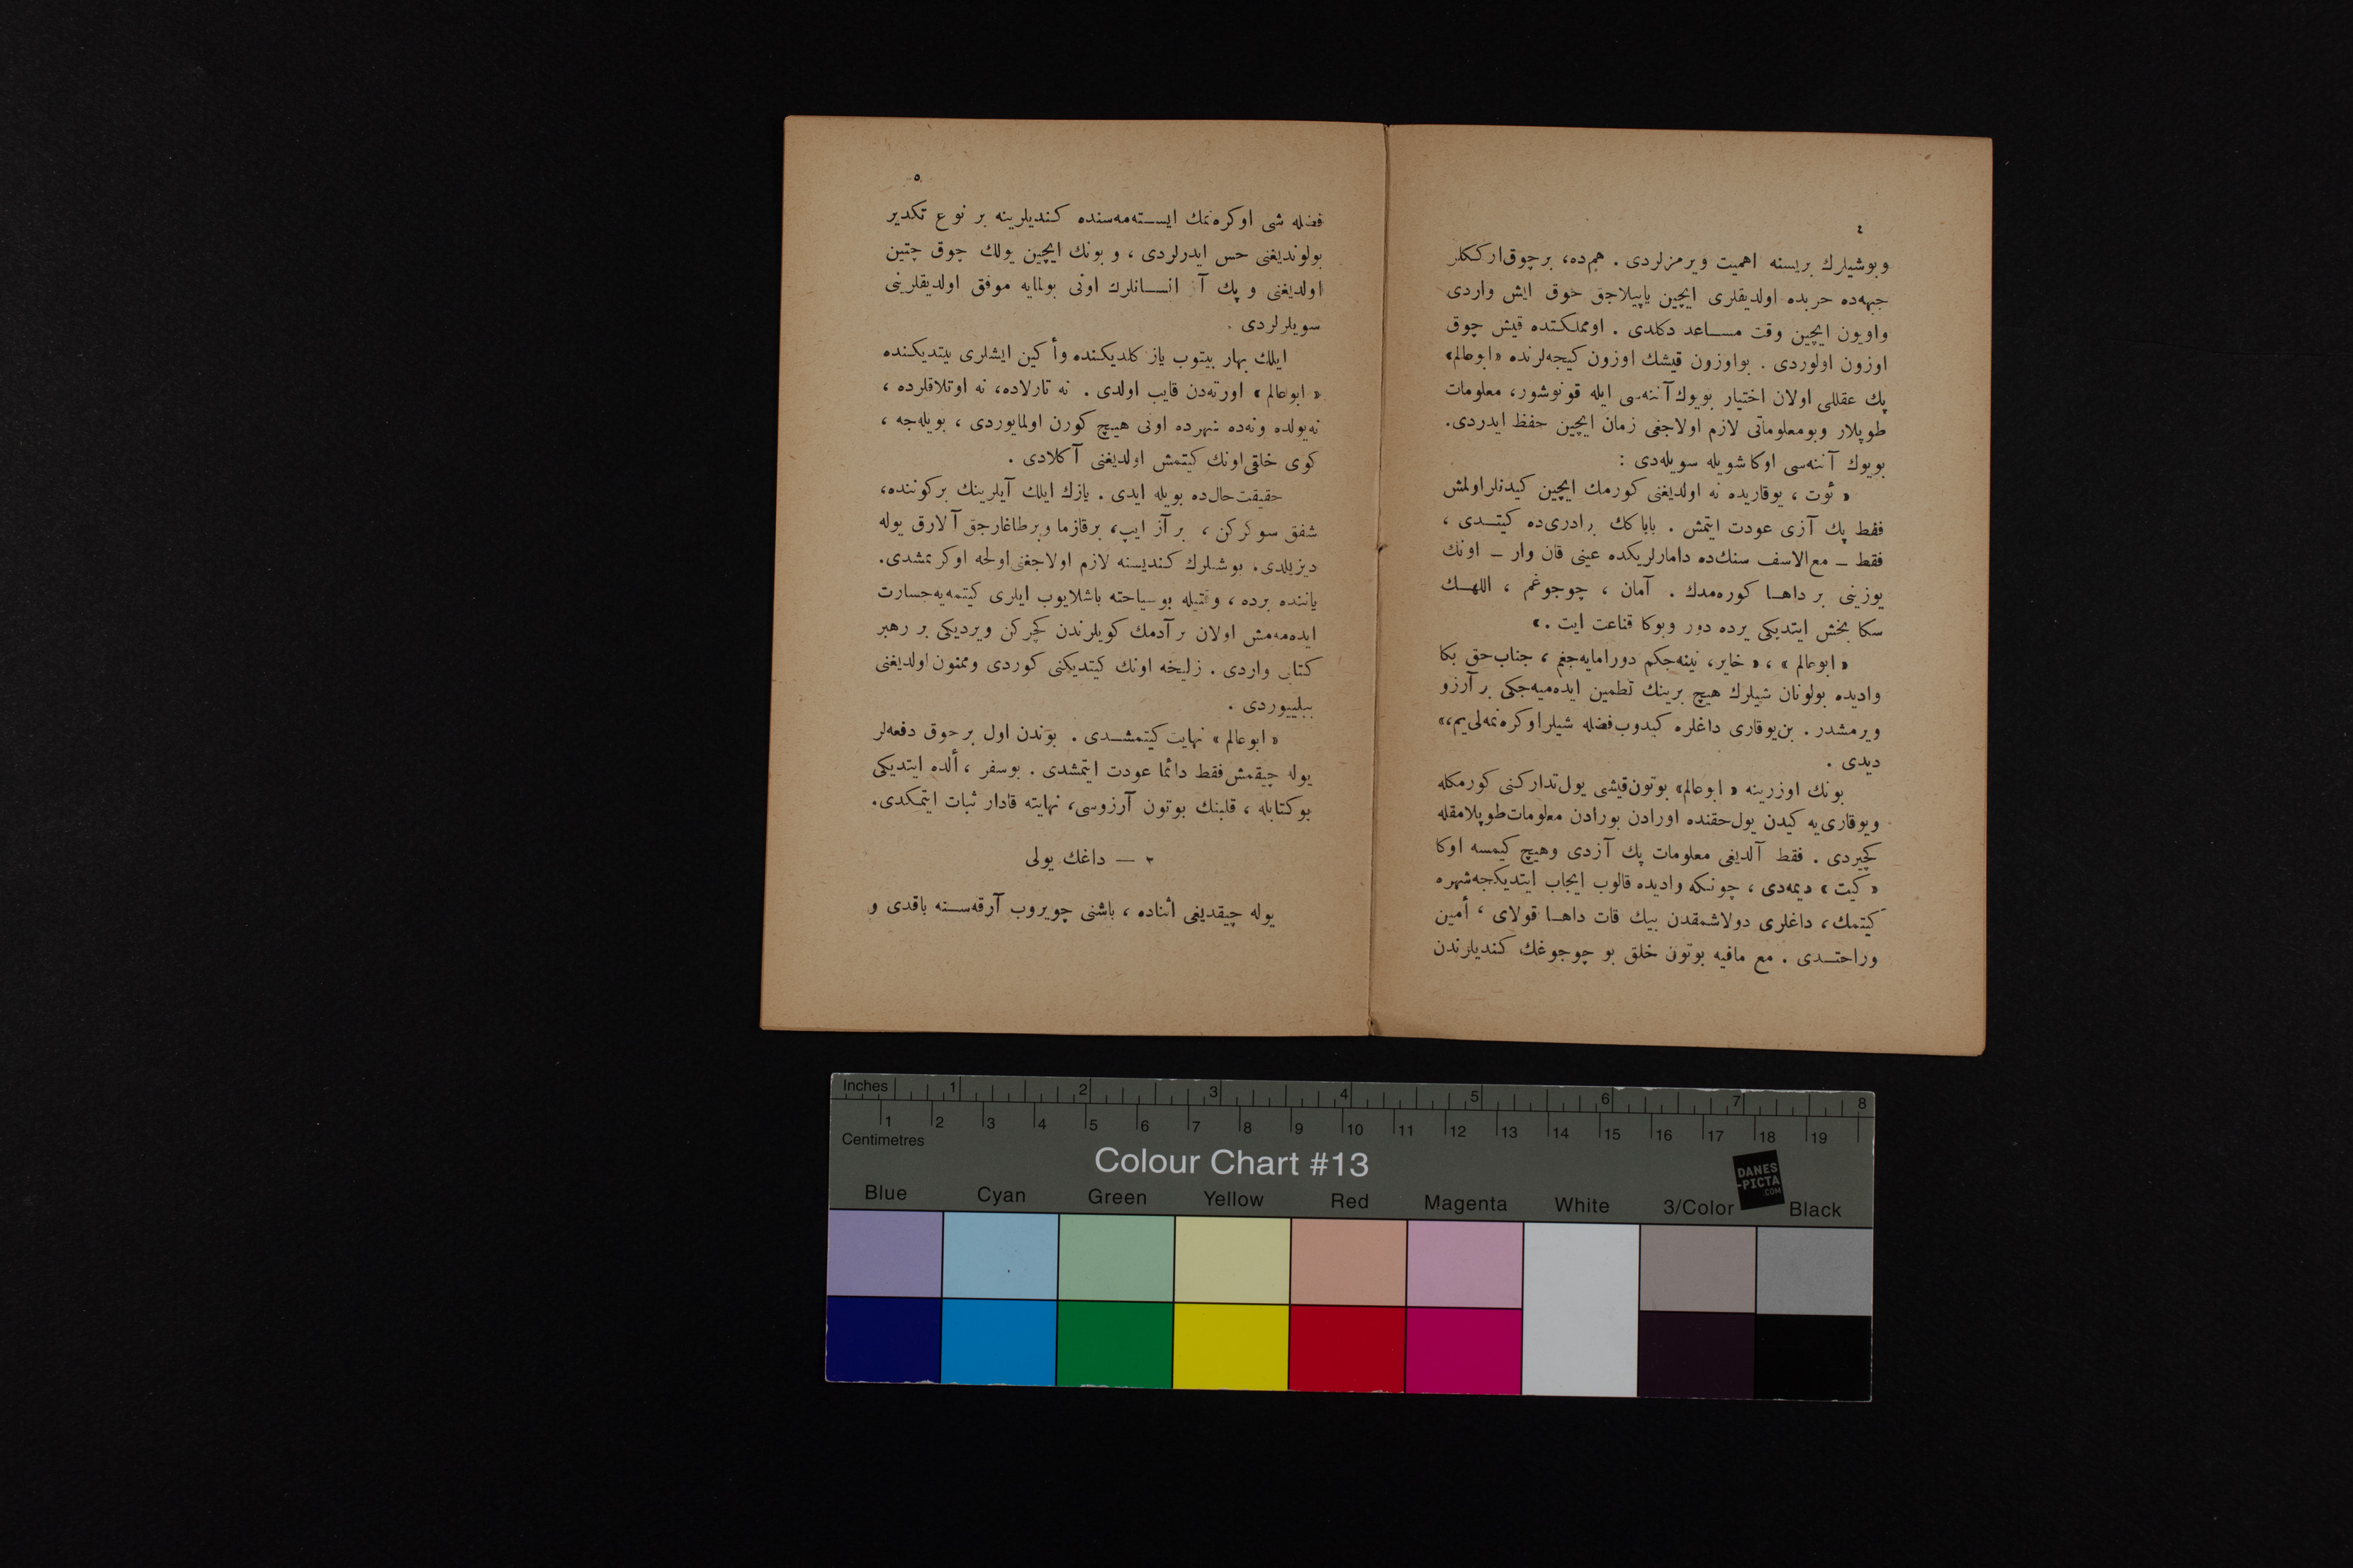 ٤
وبوشیلرك بریسنه اهمیت ویرمزلردی . هم‌ده، برچوق‌ارككلر
جبهه‌ده حربده اولدیقلری ایچین یاپیلاجق چوق ایش واردی
واویون ایچین وقت مساعد دكلدی . اومملكتده قیش چوق
اوزون اولوردی . بواوزون قیشك اوزون كیجه‌لرنده «ابوعالم»
پك عقللی اولان اختیار بویوك آننه‌سی ایله قونوشور، معلومات
طوپلار وبومعلوماتی لازم اولاجغی زمان ایچین حفظ ایدردی.
بویوك آننه‌سی اوكا شویله سویله‌دی :
« ئوت ، یوقاریده نه اولدیغنی كورمك ایچین كیدنلراولمش
فقط پك آزی عودت ایتمش . باباكك برادری‌ده كیتدی ،
فقط ــ مع‌الاسف سنك‌ده دامارلریكده عینی قان وار ــ اونك
یوزینی بر داها كوره‌مدك . آمان ، چوجوغم ، اللهك
سكا بخش ایتدیكی یرده دور وبوكا قناعت ایت .»
«ابوعالم» ، « خایر، نینه‌جكم دورامایه‌جغم ، جناب‌حق بكا
وادیده بولونان شیلرك هیچ برینك تطمین ایده‌میه‌جكی بر آرزو
ویرمشدر . بن‌یوقاری داغلره كیدوب‌فضله شیلر اوكره‌نمه‌لی‌یم،»
دیدی .
بونك اوزرینه « ابوعالم» بوتون‌قیشی یول‌تداركنی كورمكله
ویوقاری‌یه كیدن یول‌حقنده اورادن بورادن معلومات‌طوپلامقله
كچیردی . فقط آلدیغی معلومات پك آزدی وهیچ كیمسه اوكا
« كیت » دیمه‌دی ، چونكه وادیده قالوب ایجاب ایتدیكجه‌شهره
كیتمك، داغلری دولاشمقدن بیك قات داها قولای ، أمین
وراحتدی . مع مافیه بوتون خلق بو چوجوغك كندیلرندن
٥
فضله شی اوكره‌نمك ایسته‌مه‌سنده كندیلرینه بر نوع تكدیر
بولوندیغنی حس ایدرلردی ، و بونك ایچین یولك چوق چتین
اولدیغنی و پك آز انسانلرك اونی بولمایه موفق اولدیقلرینی
سویلرلردی .
ایلك بهار بیتوب یاز كلدیكنده وأكین ایشلری بیتدیكنده
« ابوعالم » اورته‌دن قایب اولدی . نه تارلاده، نه اوتلاقلرده ،
نه‌یولده ونه‌ده شهرده اونی هیچ كورن اولمایوردی ، بویله‌جه ،
كوی خلقی‌اونك كیتمش اولدیغنی آكلادی .
حقیقت‌حال‌ده بویله ایدی . یازك ایلك آیلرینك بركوننده،
شفق سوكركن ، بر آز ایپ، برقازما وبرطاغارجق آلارق یوله
دیزیلدی. بوشیلرك كندیسنه لازم اولاجغنی‌اولجه اوكرنمشدی.
یاننده برده ، وقتیله بوسیاحته باشلایوب ایلری كیتمه‌یه‌جسارت
ایده‌مه‌مش اولان بر آدمك كویلرندن كچركن ویردیكی بر رهبر
كتابی واردی . زلیخه اونك كیتدیكنی كوردی وممنون‌اولدیغنی
بیلییوردی .
« ابوعالم » نهایت كیتمشدی . بوندن اول برچوق دفعه‌لر
یوله چیقمش‌فقط دائما عودت ایتمشدی . بوسفر ، ألده ایتدیكی
بوكتابله ، قلبنك بوتون آرزوسی، نهایته قادار ثبات ایتمكدی.
٢ ــ داغك یولی
یوله چیقدیغی اثناده ، باشنی چویروب آرقه‌سنه باقدی و
Inches 1 2 3 4 5 6 7 8
1 2 3 4 5 6 7 8 9 10 11 12 13 14 15 16 17 18 19
Centimetres
Colour Chart #13
DANES
-PICTA
.COM
Blue Cyan Green Yellow Red Magenta White 3/Color Black